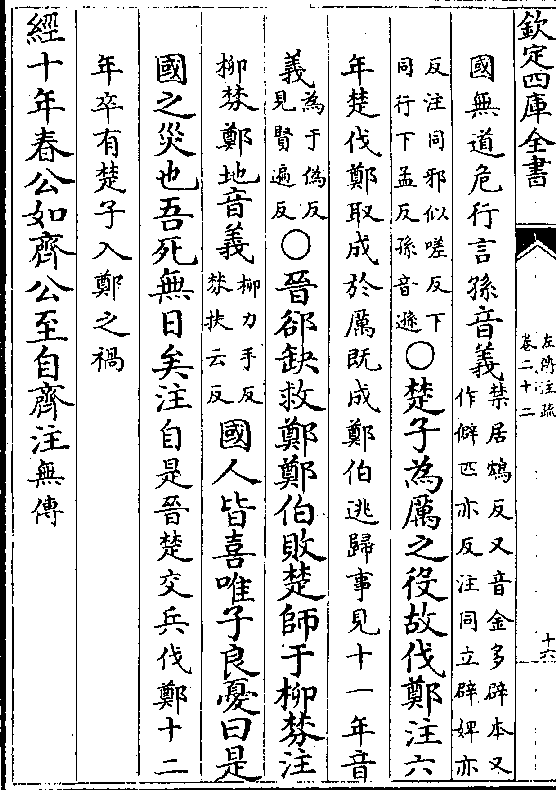 欽定四庫全書
左傳注疏
卷二十二
十六
國無道危行言孫音義禁居鴆反又音金多辟本又作僻匹亦反注同立辟婢亦
反注同邪似嗟反下同行下孟反孫音遜○楚子為厲之役故伐鄭注六
年楚伐鄭取成於厲既成鄭伯逃歸事見十一年音
義為于偽反見賢遍反○晉郤缺救鄭鄭伯敗楚師于柳棼注
柳棼鄭地音義柳力手反棼扶云反國人皆喜唯子良憂曰是
國之災也吾死無日矣注自是晉楚交兵伐鄭十二
年卒有楚子入鄭之禍
經十年春公如齊公至自齊注無傳